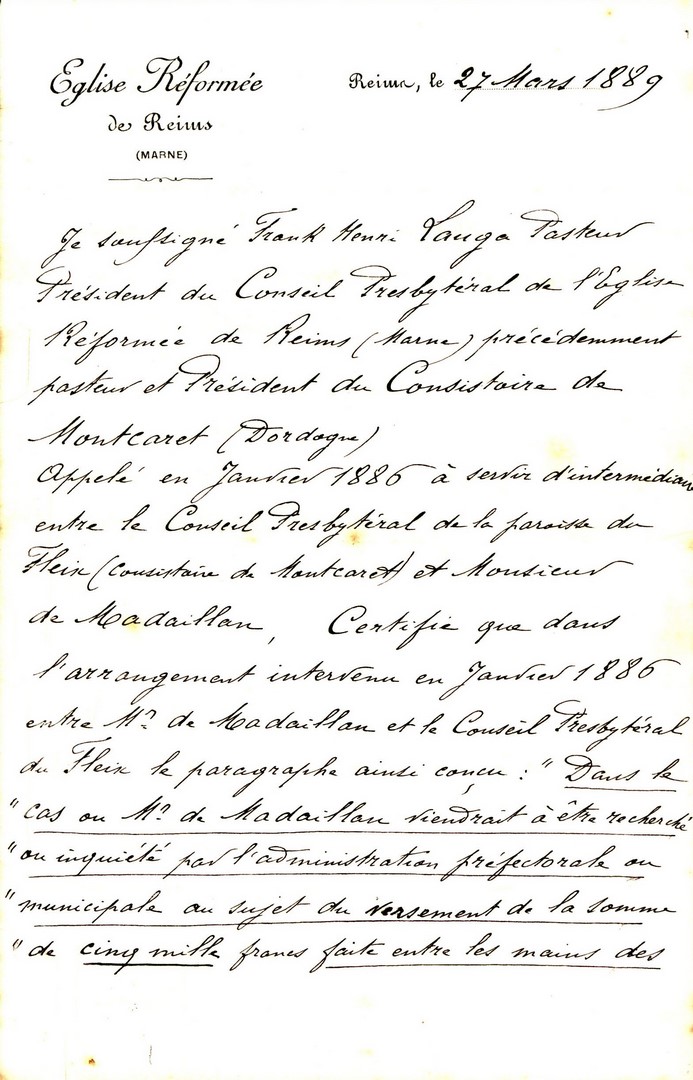 Eglise Réformée
de Reims
(MARNE)
Reims, le 27 Mars 1889
Je soussigné Frank Henri Lauga Pasteur
Président du Conseil Presbytéral de l'Eglise
Réformée de Reims (Marne) précédemment
pasteur et Président du Consistoire de
Montcaret (Dordogne)
Appelé en Janvier 1886 à servir d'intermédiaire
entre le Conseil Presbytéral de la paroisse du
Fleix (Consistoire de Montcaret) et Monsieur
de Madaillan, Certifie que dans
l'arrangement intervenu en Janvier 1886
entre Mr de Madaillan et le Conseil Presbytéral
du Fleix le paragraphe ainsi conçu : " Dans le
" cas ou Mr de Madaillan viendrait à être recherché
" ou inquiété par l'administration préfectorale ou
" municipale au sujet du versement de la somme
" de cinq mille francs faite entre les mains des